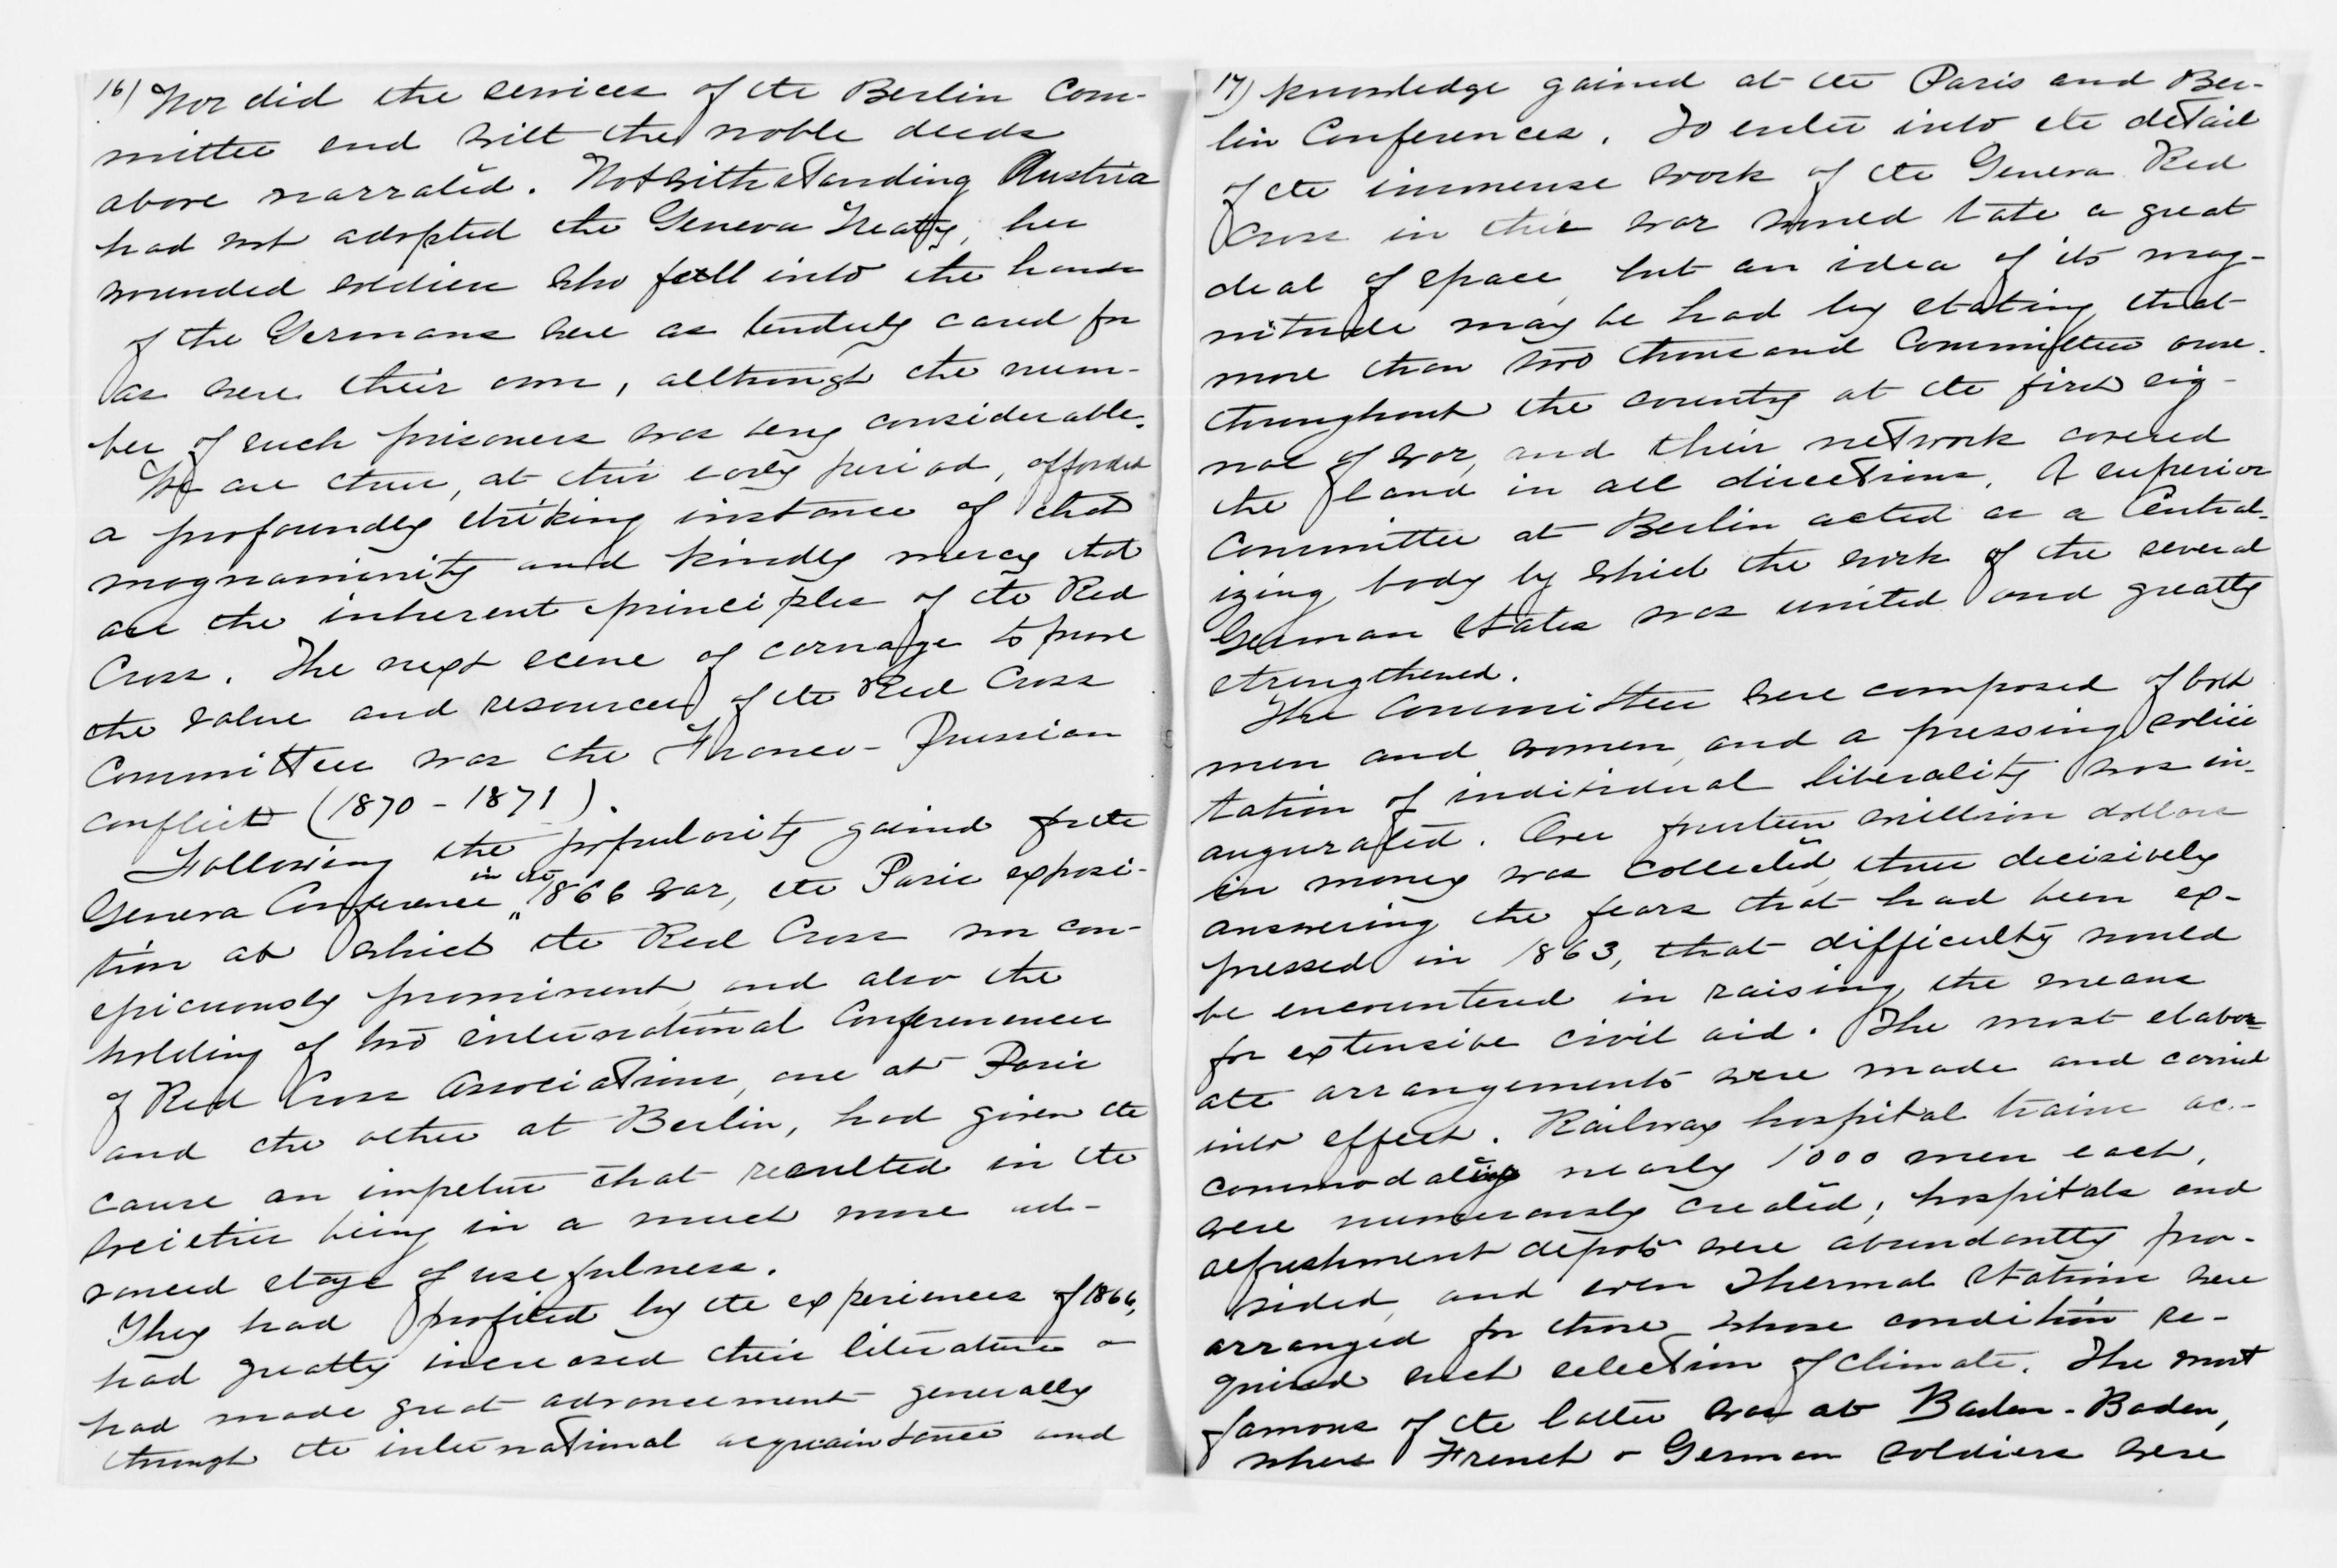 16) Nor did the services of the Berlin Com-
mittee end with the noble deeds
above narrated. Notwithstanding Austria
had not adopted the Geneva Treaty, her
wounded soldiers who fell into the hands
of the Germans were as tenderly cared for
as were their own, although the num-
ber of such prisoners was very considerable.
We are thus, at this early period, afforded
a profoundly striking instance of that
magnanimity and kindly mercy that
are the inherent principles of the Red
Cross. The next scene of carnage to prove
the value and resources of the Red Cross
Committees was the Franco-Prussian
conflict (1870 - 1871).
Following the popularity gained for the
Geneva Conference in the 1866 war, the Paris exposi-
tion at which the Red Cross was con-
spicuously prominent, and also the
holding of two international Conferences
of Red Cross Associations, one at Paris
and the other at Berlin, had given the
cause an impetus that resulted in the
societies being in a much more ad-
vanced stage of usefulness.
They had profited by the experiences of 1866,
had greatly increased their literature &
had made great advancement generally
through the international acquaintance and
17) knowledge gained at the Paris and Ber-
lin Conferences. To enter into the detail
of the immense work of the Geneva Red
Cross in this war would take a great
deal of space, but an idea of its mag-
nitude may be had by stating that
more than two thousand Committees arose
throughout the country at the first sig-
nal of war, and their network covered
the land in all directions. A superior
Committee at Berlin acted as a Central-
izing body by which the work of the several
German States was united and greatly
strengthened.
The Committees were composed of both
men and women, and a pressing solici
tation of individual liberality was in-
augurated. Over fourteen million dollars
in money was collected, thus decisively
answering the fears that had been ex-
pressed in 1863, that difficulty would
be encountered in raising the means
for extensive civil aid. The most elabor-
ate arrangements were made and carried
into effect. Railway hospital trains ac-
commodating nearly 1000 men each,
were numerously created; hospitals and
refreshment depots were abundantly pro-
vided, and even Thermal Stations were
arranged for those whose condition re-
quired such selection of climate. The most
famous of the latter was at Baden-Baden,
where French & German soldiers were